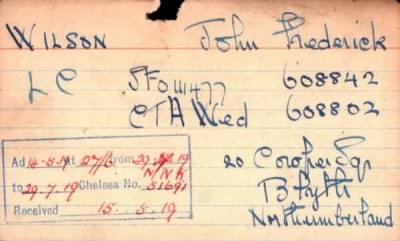 WILSON John Frederick
LC SFO111477 608842
CTA Wied 608802
Ad 14-5-19 at 27/6 from 29.4.19
N/N K
to 29.7.19 Chelsea No. 51691
Received 15. 5. 19
20 Cowper Sqr
Blyth
Northumberland